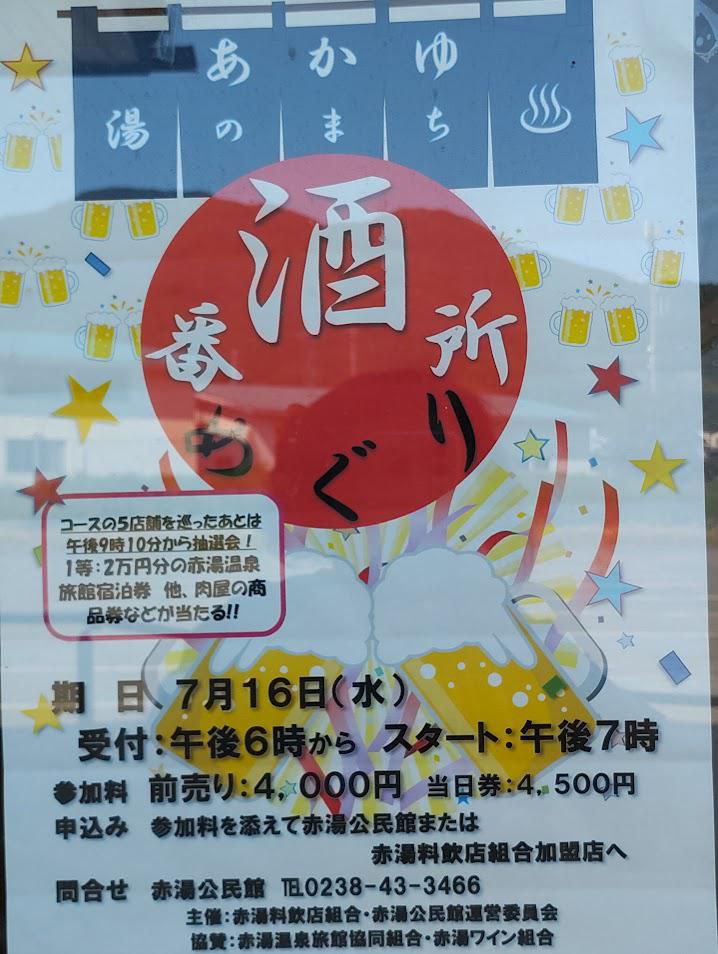 あかゆ
湯のまち
酒
番所
めぐり
コースの5店舗を巡ったあとは
午後9時10分から抽選会！
1等：2万円分の赤湯温泉
旅館宿泊券　他、肉屋の商
品券などが当たる!!
期　日　7月16日(水)
受付：午後6時から　スタート：午後7時
参加料　前売り：4，000円　当日券：4，500円
申込み　参加料を添えて赤湯公民館または
赤湯料飲店組合加盟店へ
問合せ　赤湯公民館　℡0238-43-3466
主催：赤湯料飲店組合・赤湯公民館運営委員会
協賛：赤湯温泉旅館協同組合・赤湯ワイン組合